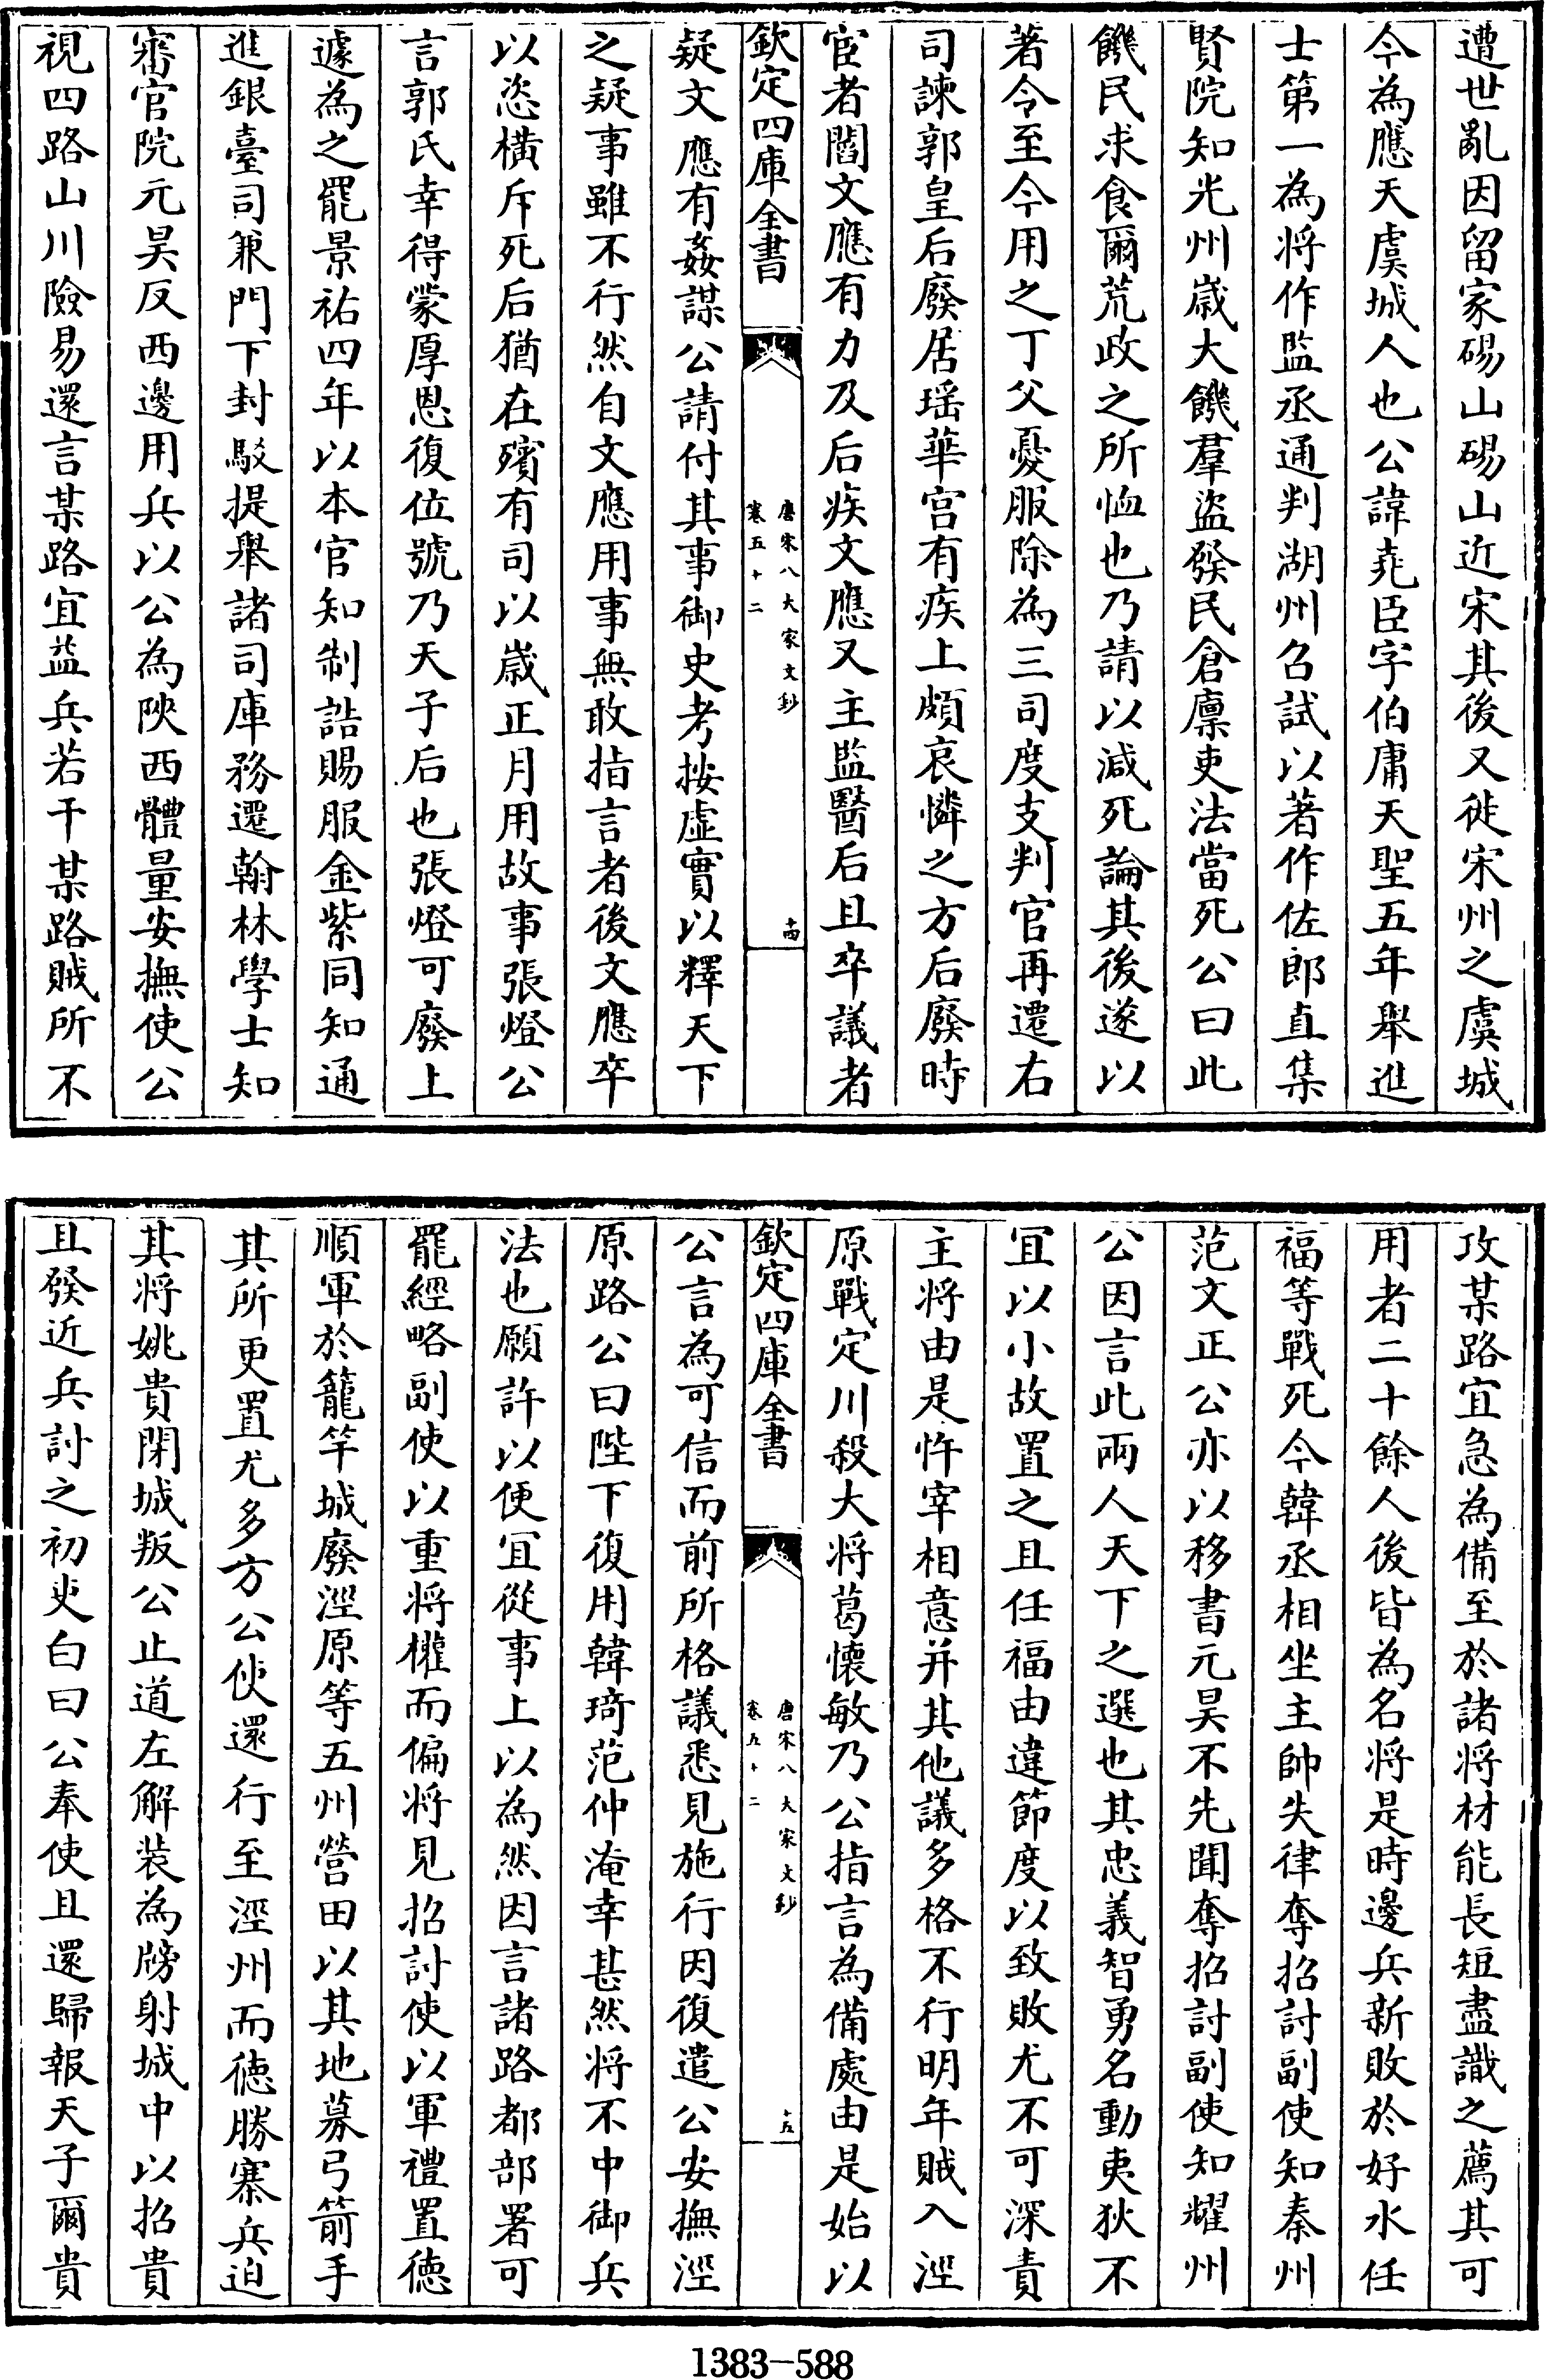 遭世亂因留家碭山碭山近宋其後又徙宋州之虞城
今為應天虞城人也公諱堯臣字伯庸天聖五年舉進
士第一為將作監丞通判湖州召試以著作佐郎直集
賢院知光州歲大饑羣盜發民倉廩吏法當死公曰此
饑民求食爾荒政之所恤也乃請以減死論其後遂以
著令至今用之丁父憂服除為三司度支判官再遷右
司諫郭皇后廢居瑶華宮有疾上頗哀憐之方后廢時
宦者閻文應有力及后疾文應又主監醫后且卒議者
欽定四庫全書
唐宋八大家文鈔
卷五十二
十四
疑文應有姦謀公請付其事御史考按虛實以釋天下
之疑事雖不行然自文應用事無敢指言者後文應卒
以恣橫斥死后猶在殯有司以歲正月用故事張燈公
言郭氏幸得蒙厚恩復位號乃天子后也張燈可廢上
遽為之罷景祐四年以本官知制誥賜服金紫同知通
進銀臺司兼門下封駁提舉諸司庫務遷翰林學士知
審官院元昊反西邊用兵以公為陜西體量安撫使公
視四路山川險易還言某路宜益兵若干某路賊所不
攻某路宜急為備至於諸將材能長短盡識之薦其可
用者二十餘人後皆為名將是時邊兵新敗於好水任
福等戰死今韓丞相坐主帥失律奪招討副使知秦州
范文正公亦以移書元昊不先聞奪招討副使知耀州
公因言此兩人天下之選也其忠義智勇名動夷狄不
宜以小故置之且任福由違節度以致敗尤不可深責
主將由是忤宰相意并其他議多格不行明年賊入涇
原戰定川殺大將葛懷敏乃公指言為備處由是始以
欽定四庫全書
唐宋八大家文鈔
卷五十二
十五
公言為可信而前所格議悉見施行因復遣公安撫涇
原路公曰陛下復用韓琦范仲淹幸甚然將不中御兵
法也願許以便宜從事上以為然因言諸路都部署可
罷經略副使以重將權而偏將見招討使以軍禮置德
順軍於籠竿城廢涇原等五州營田以其地募弓箭手
其所更置尤多方公使還行至涇州而德勝寨兵迫
其將姚貴閉城叛公止道左解裝為牓射城中以招貴
且發近兵討之初吏白曰公奉使且還歸報天子爾貴
1383-588